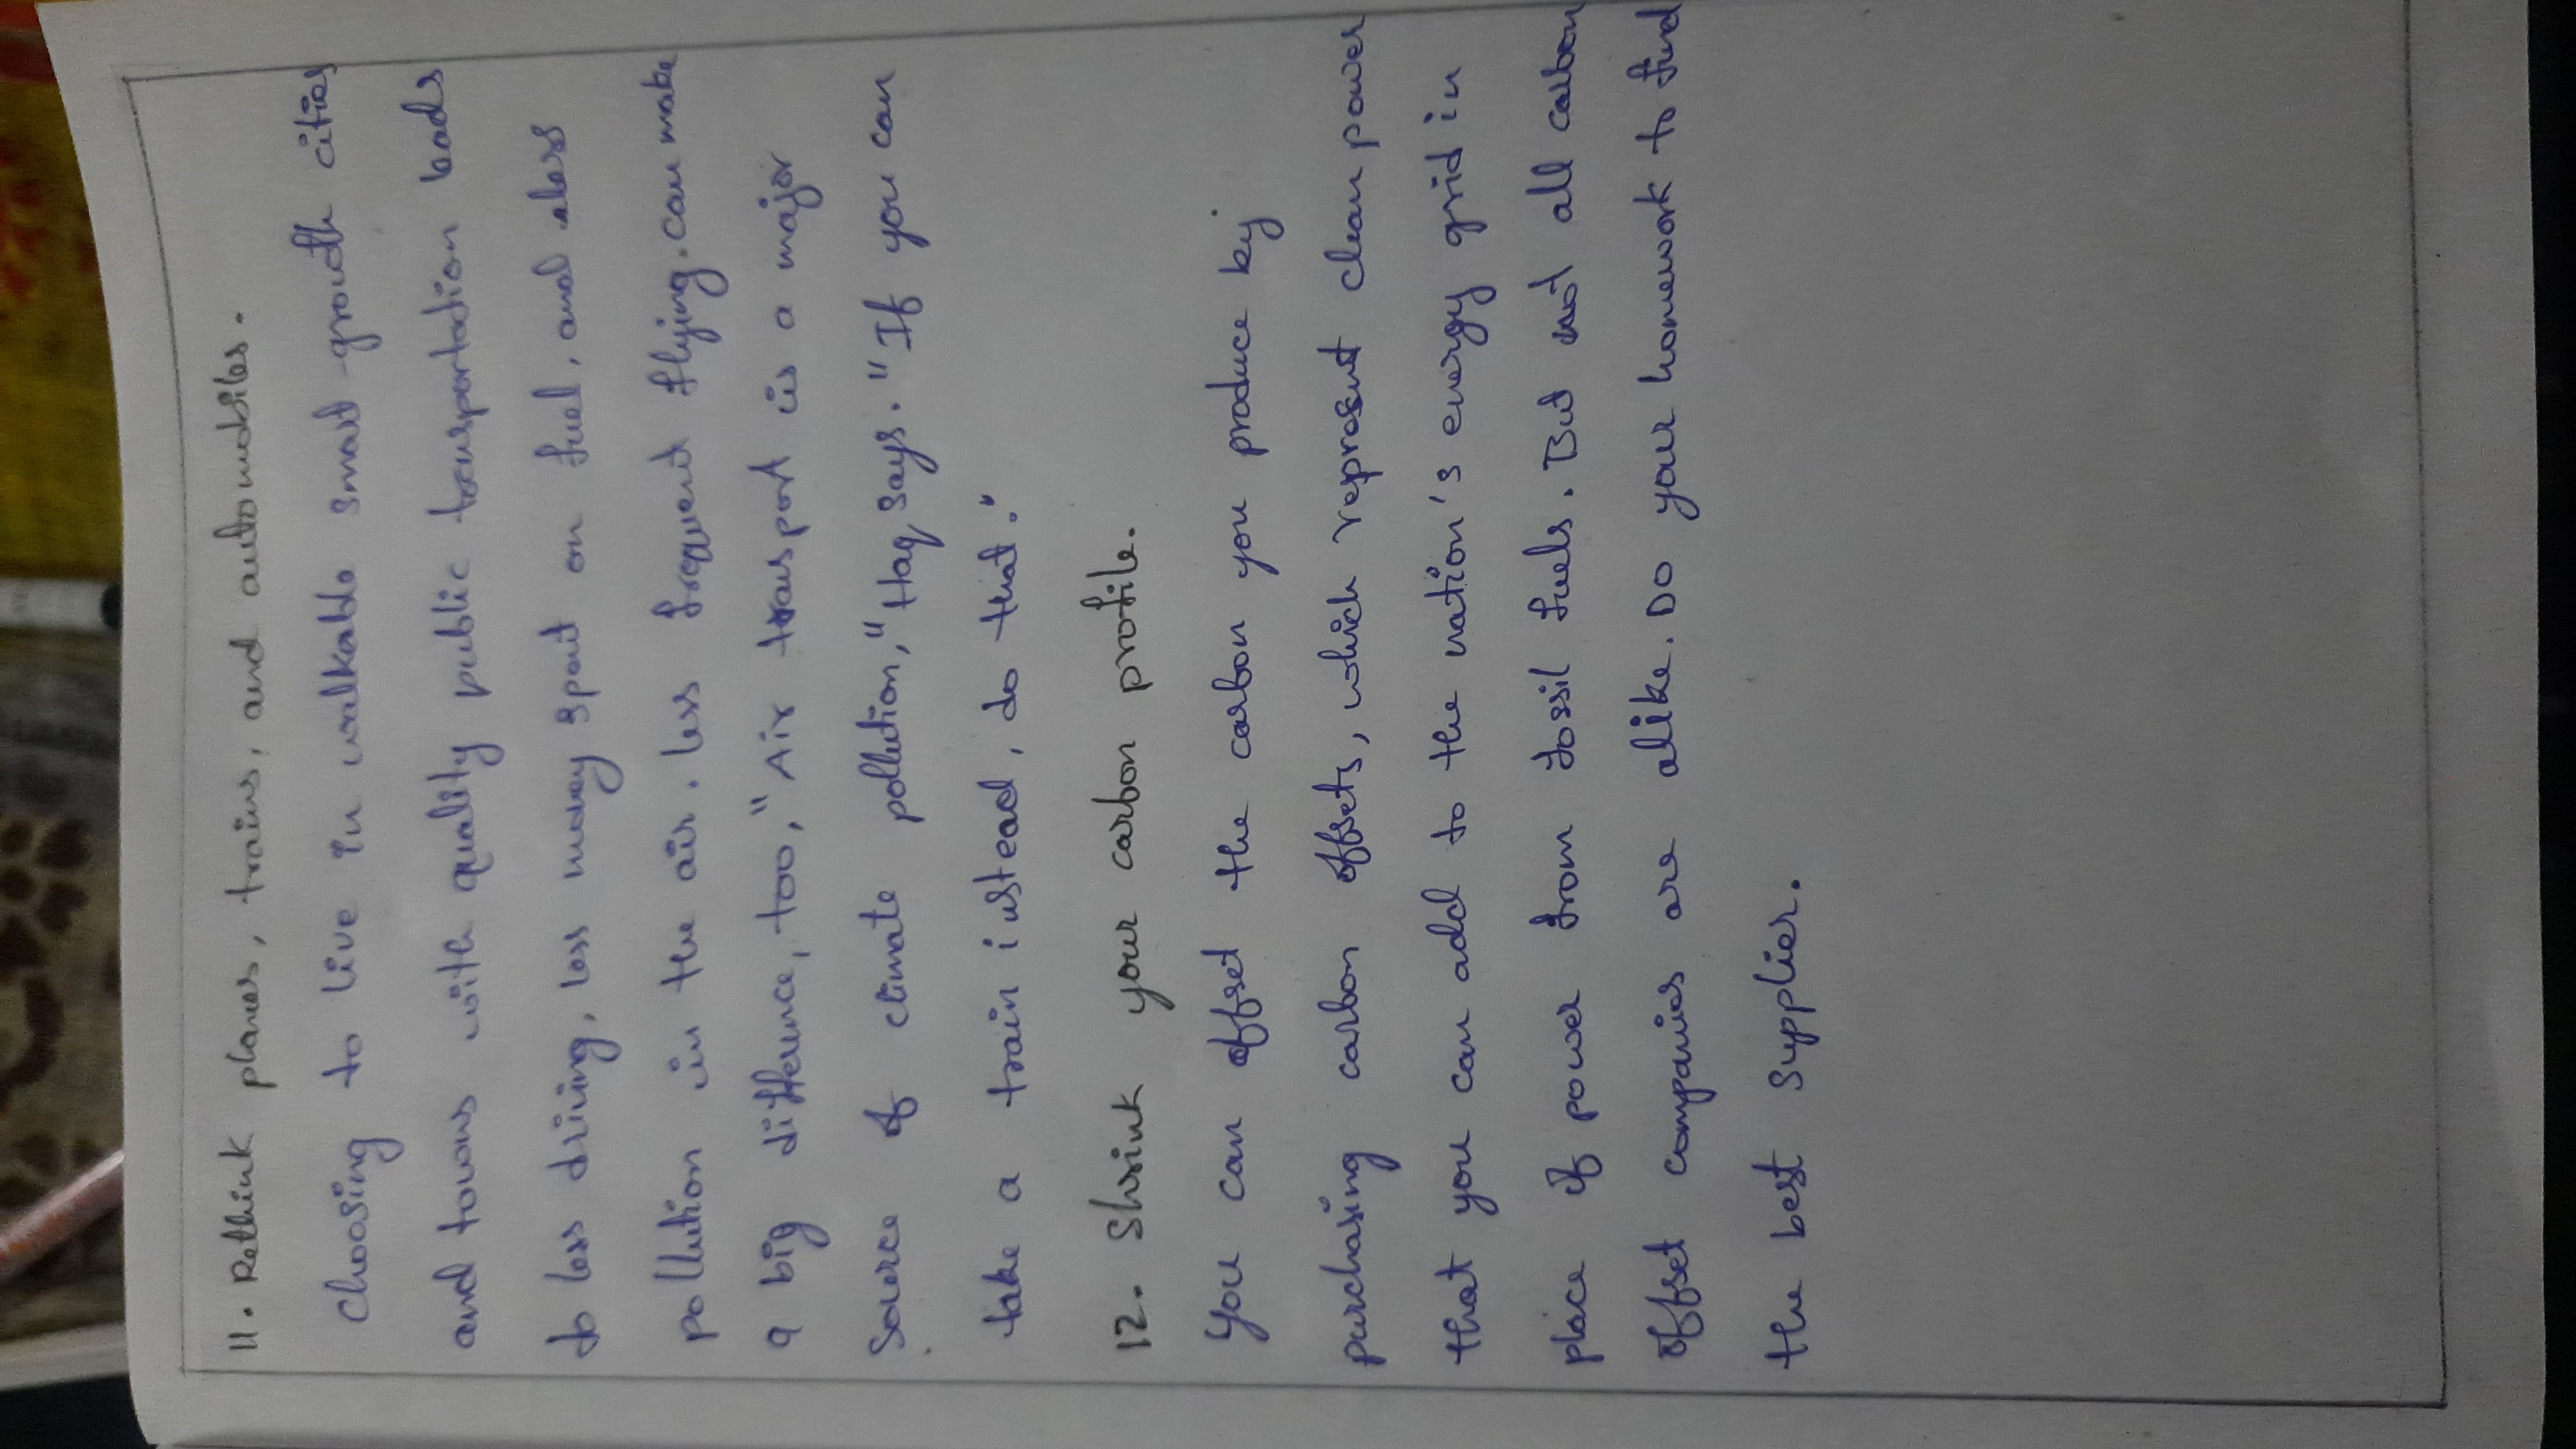 11. Rethink planes, trains, and automobiles.
Choosing to live in walkable smart growth cities
and towns with quality public transportation leads
to less driving, less money spent on fuel, and less
pollution in the air. less frequent flying. can make
a big difference, too, "Air transport is a major
Source of climate pollution," Haq says. "If you can
take a train instead, do that."
12. Shrink your carbon profile.
You can offset the carbon you produce by
purchasing carbon offsets, which represent clean power
that you can add to the nation's energy grid in
place of power from fossil fuels. But not all carbon
offset companies are alike. Do your homework to find
the best supplier.